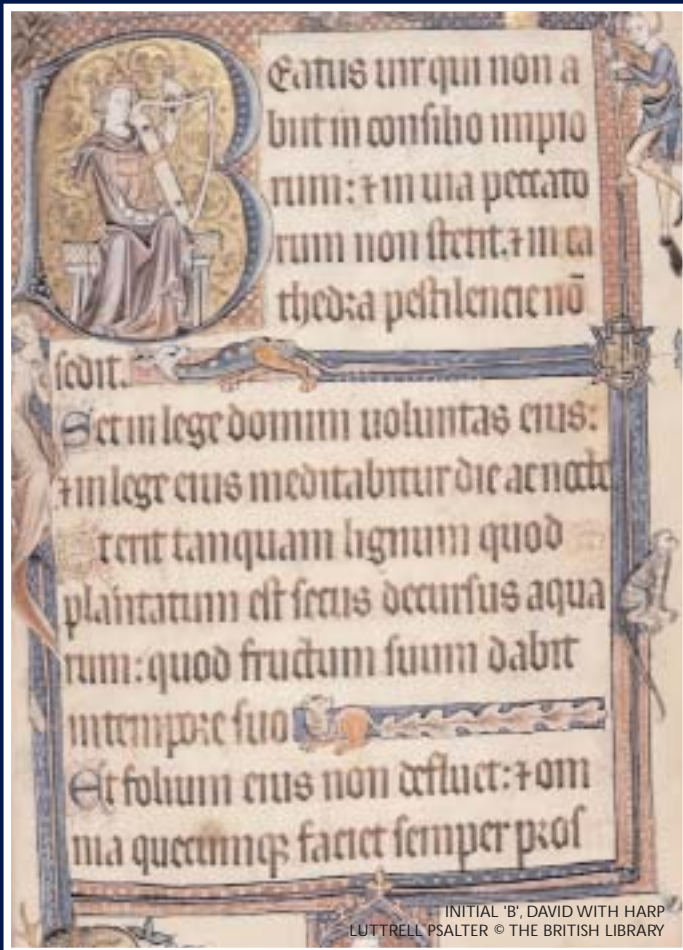 Beatus uir qui non a
biit in consilio impio
rum: ⁊ in uia peccato
rum non stetit. ⁊ in ca
thedra pestilencie nō
sedit.
Set in lege domini uoluntas eius:
⁊ in lege eius meditabitur die ac nocte
Et erit tanquam lignum quod
plantatum est secus decursus aqua
rum: quod fructum suum dabit
in tempore suo
Et folium eius non defluet: ⁊ om
nia quecumqꝫ faciet semper pros
INITIAL 'B', DAVID WITH HARP
LUTTRELL PSALTER © THE BRITISH LIBRARY